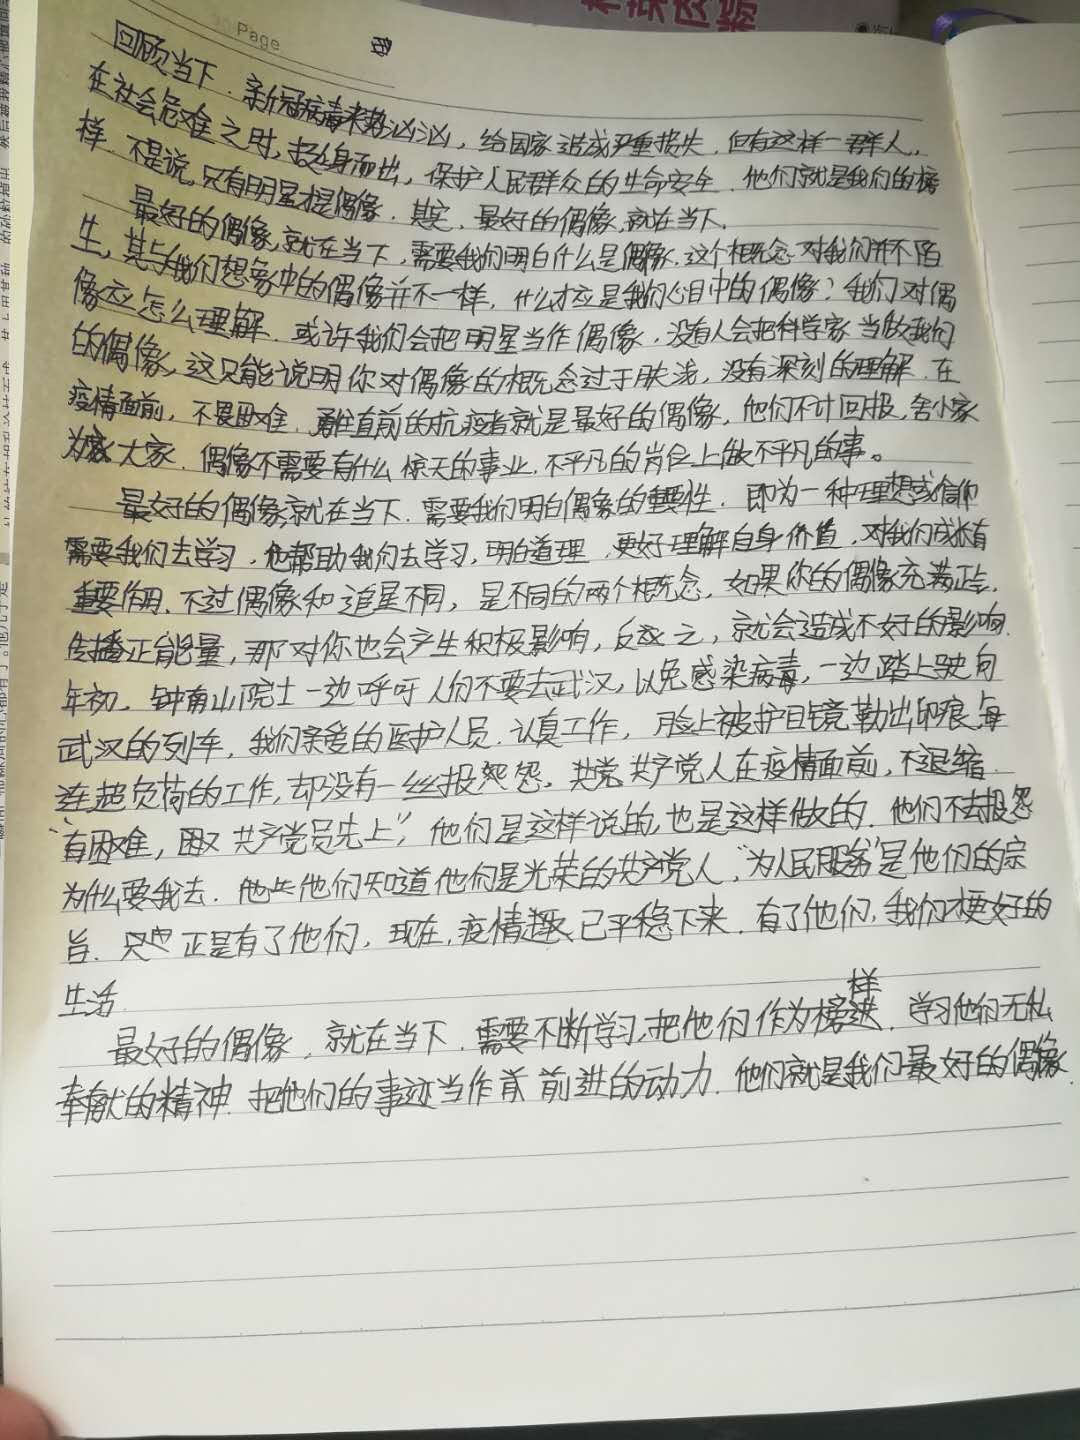 Page
回顾当下.新冠病毒来势汹汹,给国家造成严重损失.但有这样一群人,
在社会危难之时,挺身而出,保护人民群众的生命安全.他们就是我们的榜
样.不是说,只有明星才是偶像.其实,最好的偶像,就在当下.
最好的偶像,就在当下,需要我们明白什么是偶像.这个概念对我们并不陌
生,其与我们想象中的偶像并不一样,什么才应是我们心目中的偶像?我们对偶
像应怎么理解.或许我们会把明星当作偶像.没有人会把科学家当做我们
的偶像,这只能说明你对偶像的概念过于肤浅,没有深刻的理解.在
疫情面前,不畏困难.勇往直前的抗疫者就是最好的偶像,他们不计回报,舍小家
为大家.偶像不需要有什么惊天的事业.不平凡的岗位上做不平凡的事。
最好的偶像,就在当下.需要我们明白偶像的重要性.即为一种理想或信仰
需要我们去学习,他帮助我们去学习,明白道理,更好理解自身价值,对我们成长有
重要作用.不过偶像和追星不同,是不同的两个概念,如果你的偶像充满正能,
传播正能量,那对你也会产生积极影响,反之,就会造成不好的影响.
年初,钟南山院士一边呼吁人们不要去武汉,以免感染病毒,一边踏上驶向
武汉的列车,我们亲爱的医护人员.认真工作,脸上被护目镜勒出印痕,每
连超负荷的工作,却没有一丝报怨.共产党人在疫情面前,不退缩.
"有困难,共产党员先上",他们是这样说的,也是这样做的.他们不去报怨
为什么要我去.他们知道他们是光荣的共产党人,"为人民服务"是他们的宗
旨.正是有了他们,现在,疫情已平稳下来.有了他们,我们才更好的
生活.
最好的偶像,就在当下.需要不断学习,把他们作为榜样.学习他们无私
奉献的精神.把他们的事迹当作前进的动力.他们就是我们最好的偶像.